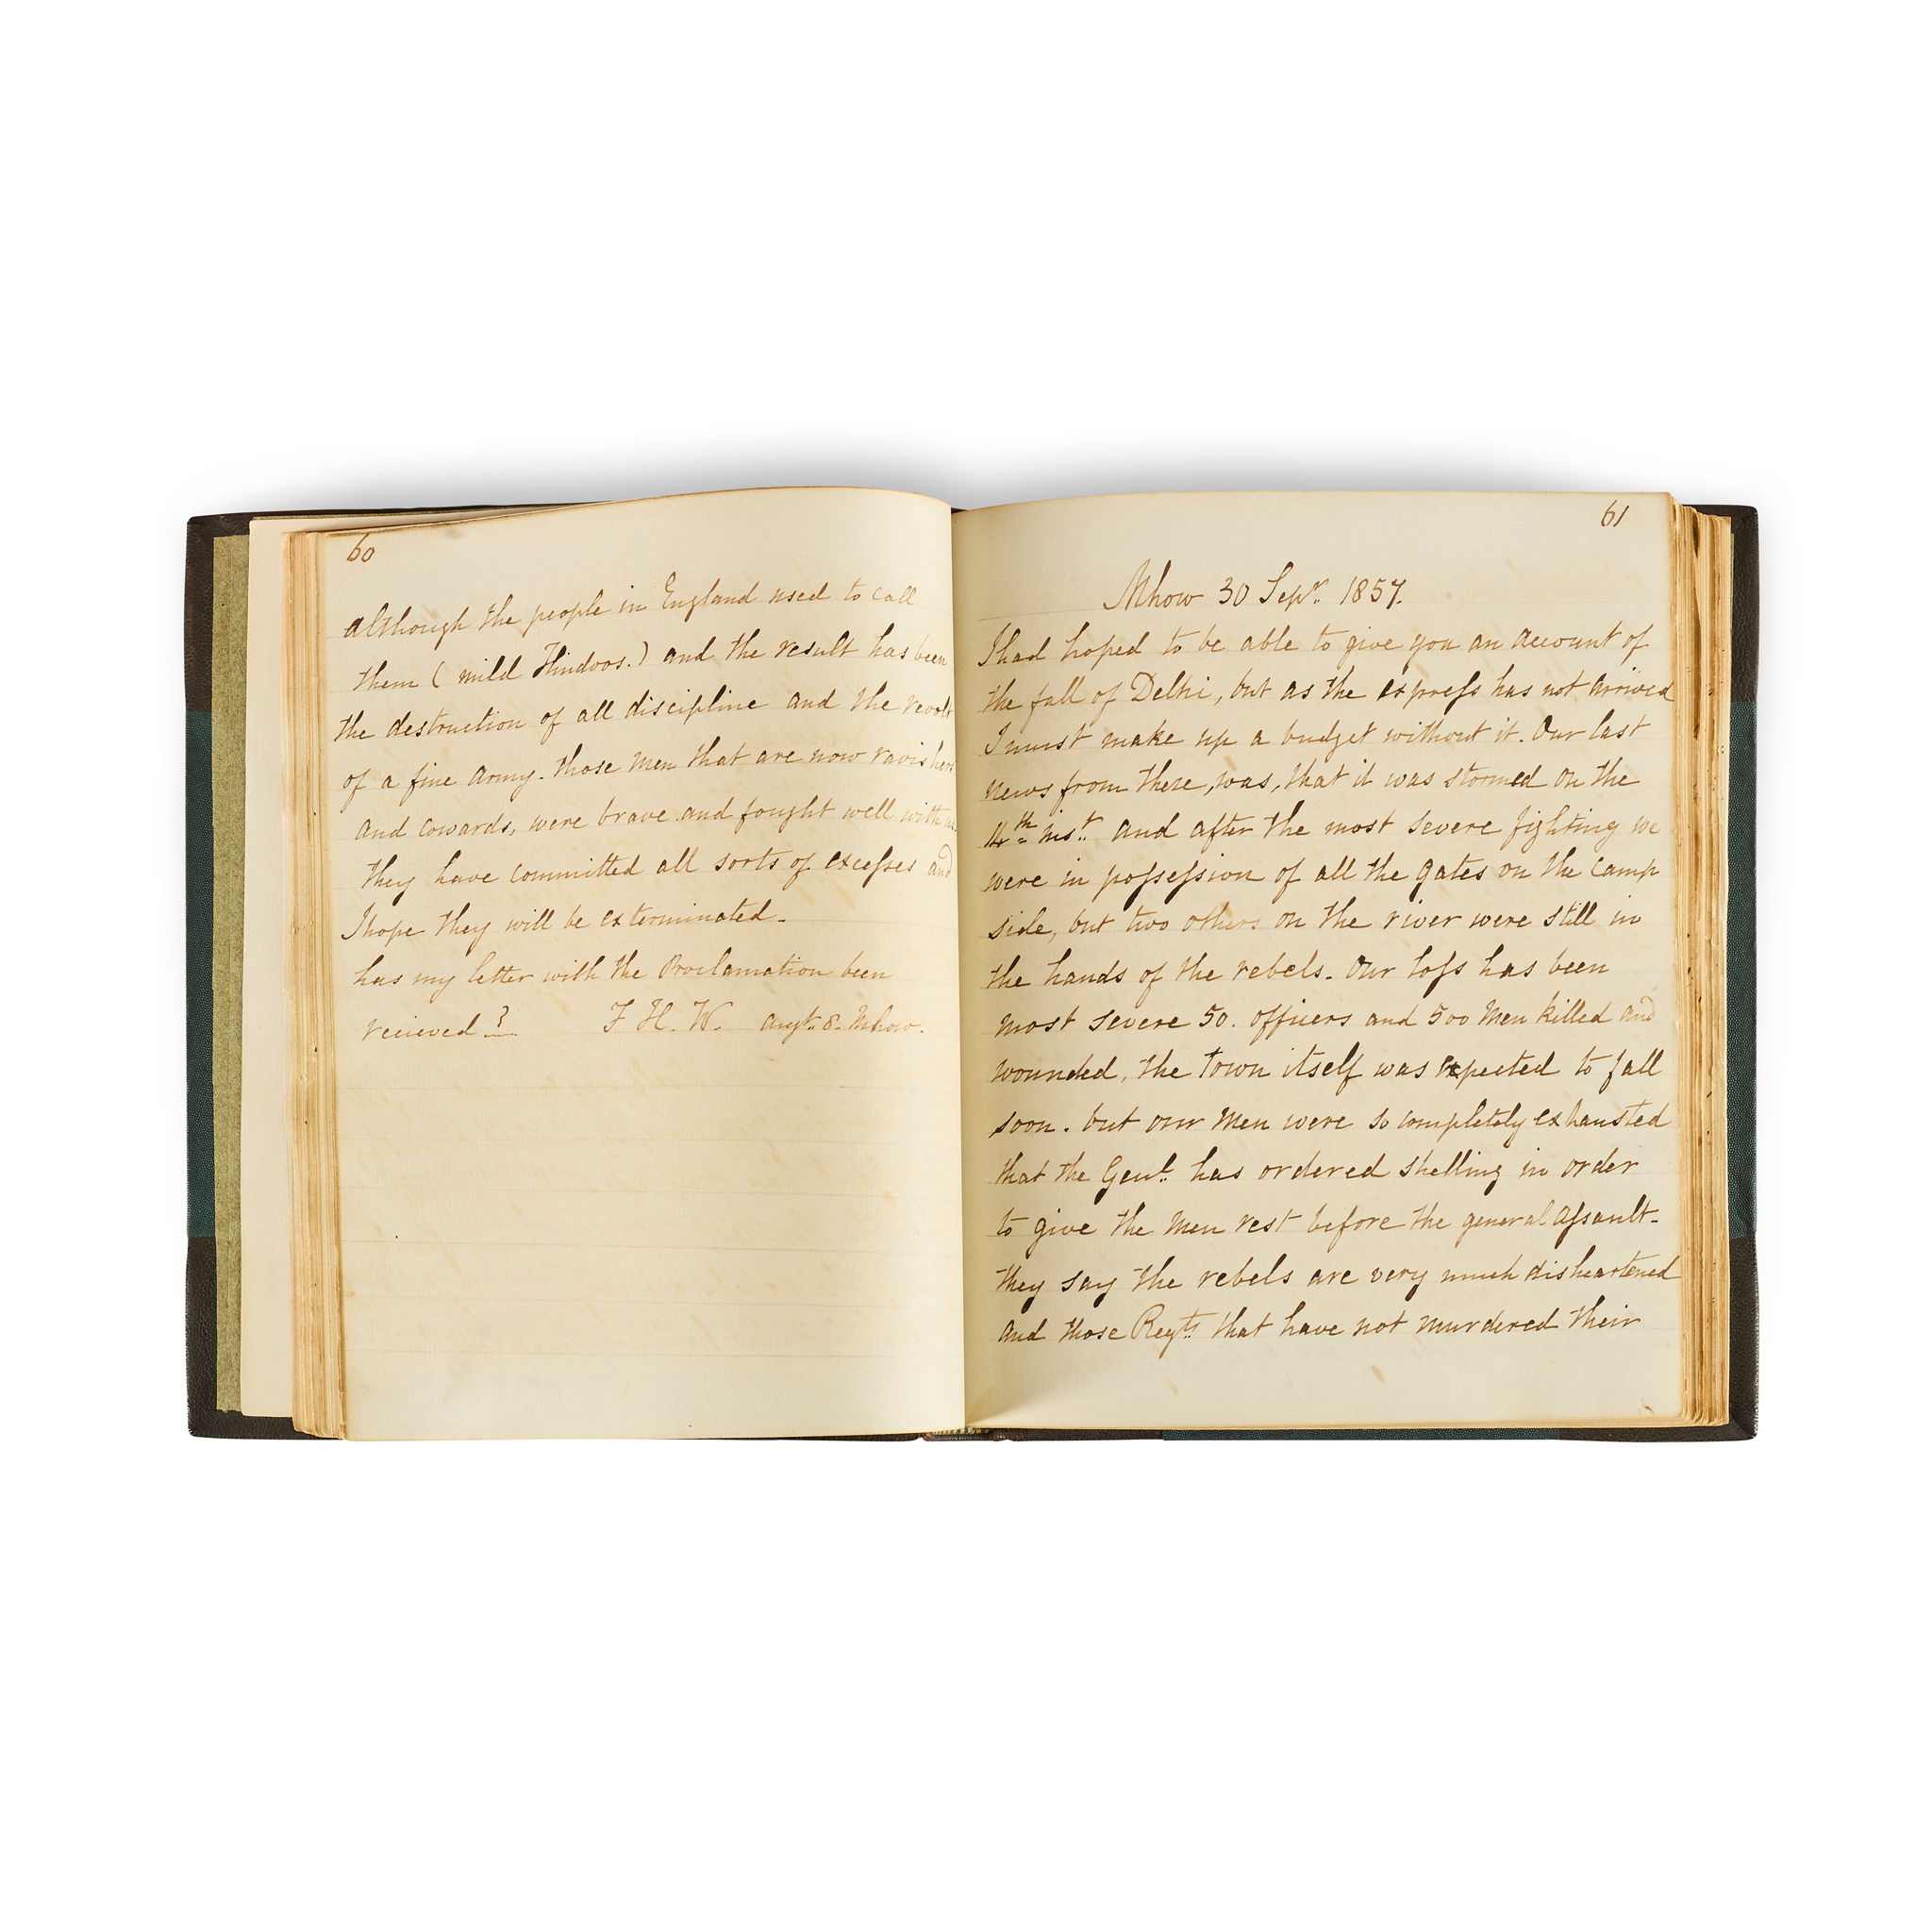 60
although the people in England used to call
them ( mild Hindoos.) and the result has been
the destruction of all discipline and the revolt
of a fine army. those men that are now ravishers
and cowards, were brave and fought well with us.
they have committed all sorts of excesses and
I hope they will be exterminated_
has my letter with the Proclamation been
recieved ? F H. W. Augt. 8. Mhow.
61
Mhow 30 Sepr. 1857.
I had hoped to be able to give you an account of
the fall of Delhi, but as the express has not arrived
I must make up a budget without it. Our last
news from there, was, that it was stormed on the
14th inst. and after the most severe fighting we
were in possession of all the gates on the camp
side, but two others on the river were still in
the hands of the rebels_ Our loss has been
most severe 50. officers and 500 Men killed and
wounded, the town itself was expected to fall
soon. but our Men were so completely exhausted
that the Genl. has ordered shelling in order
to give the Men rest before the general assault_
they say the rebels are very much disheartened
and those Regts. that have not murdered their